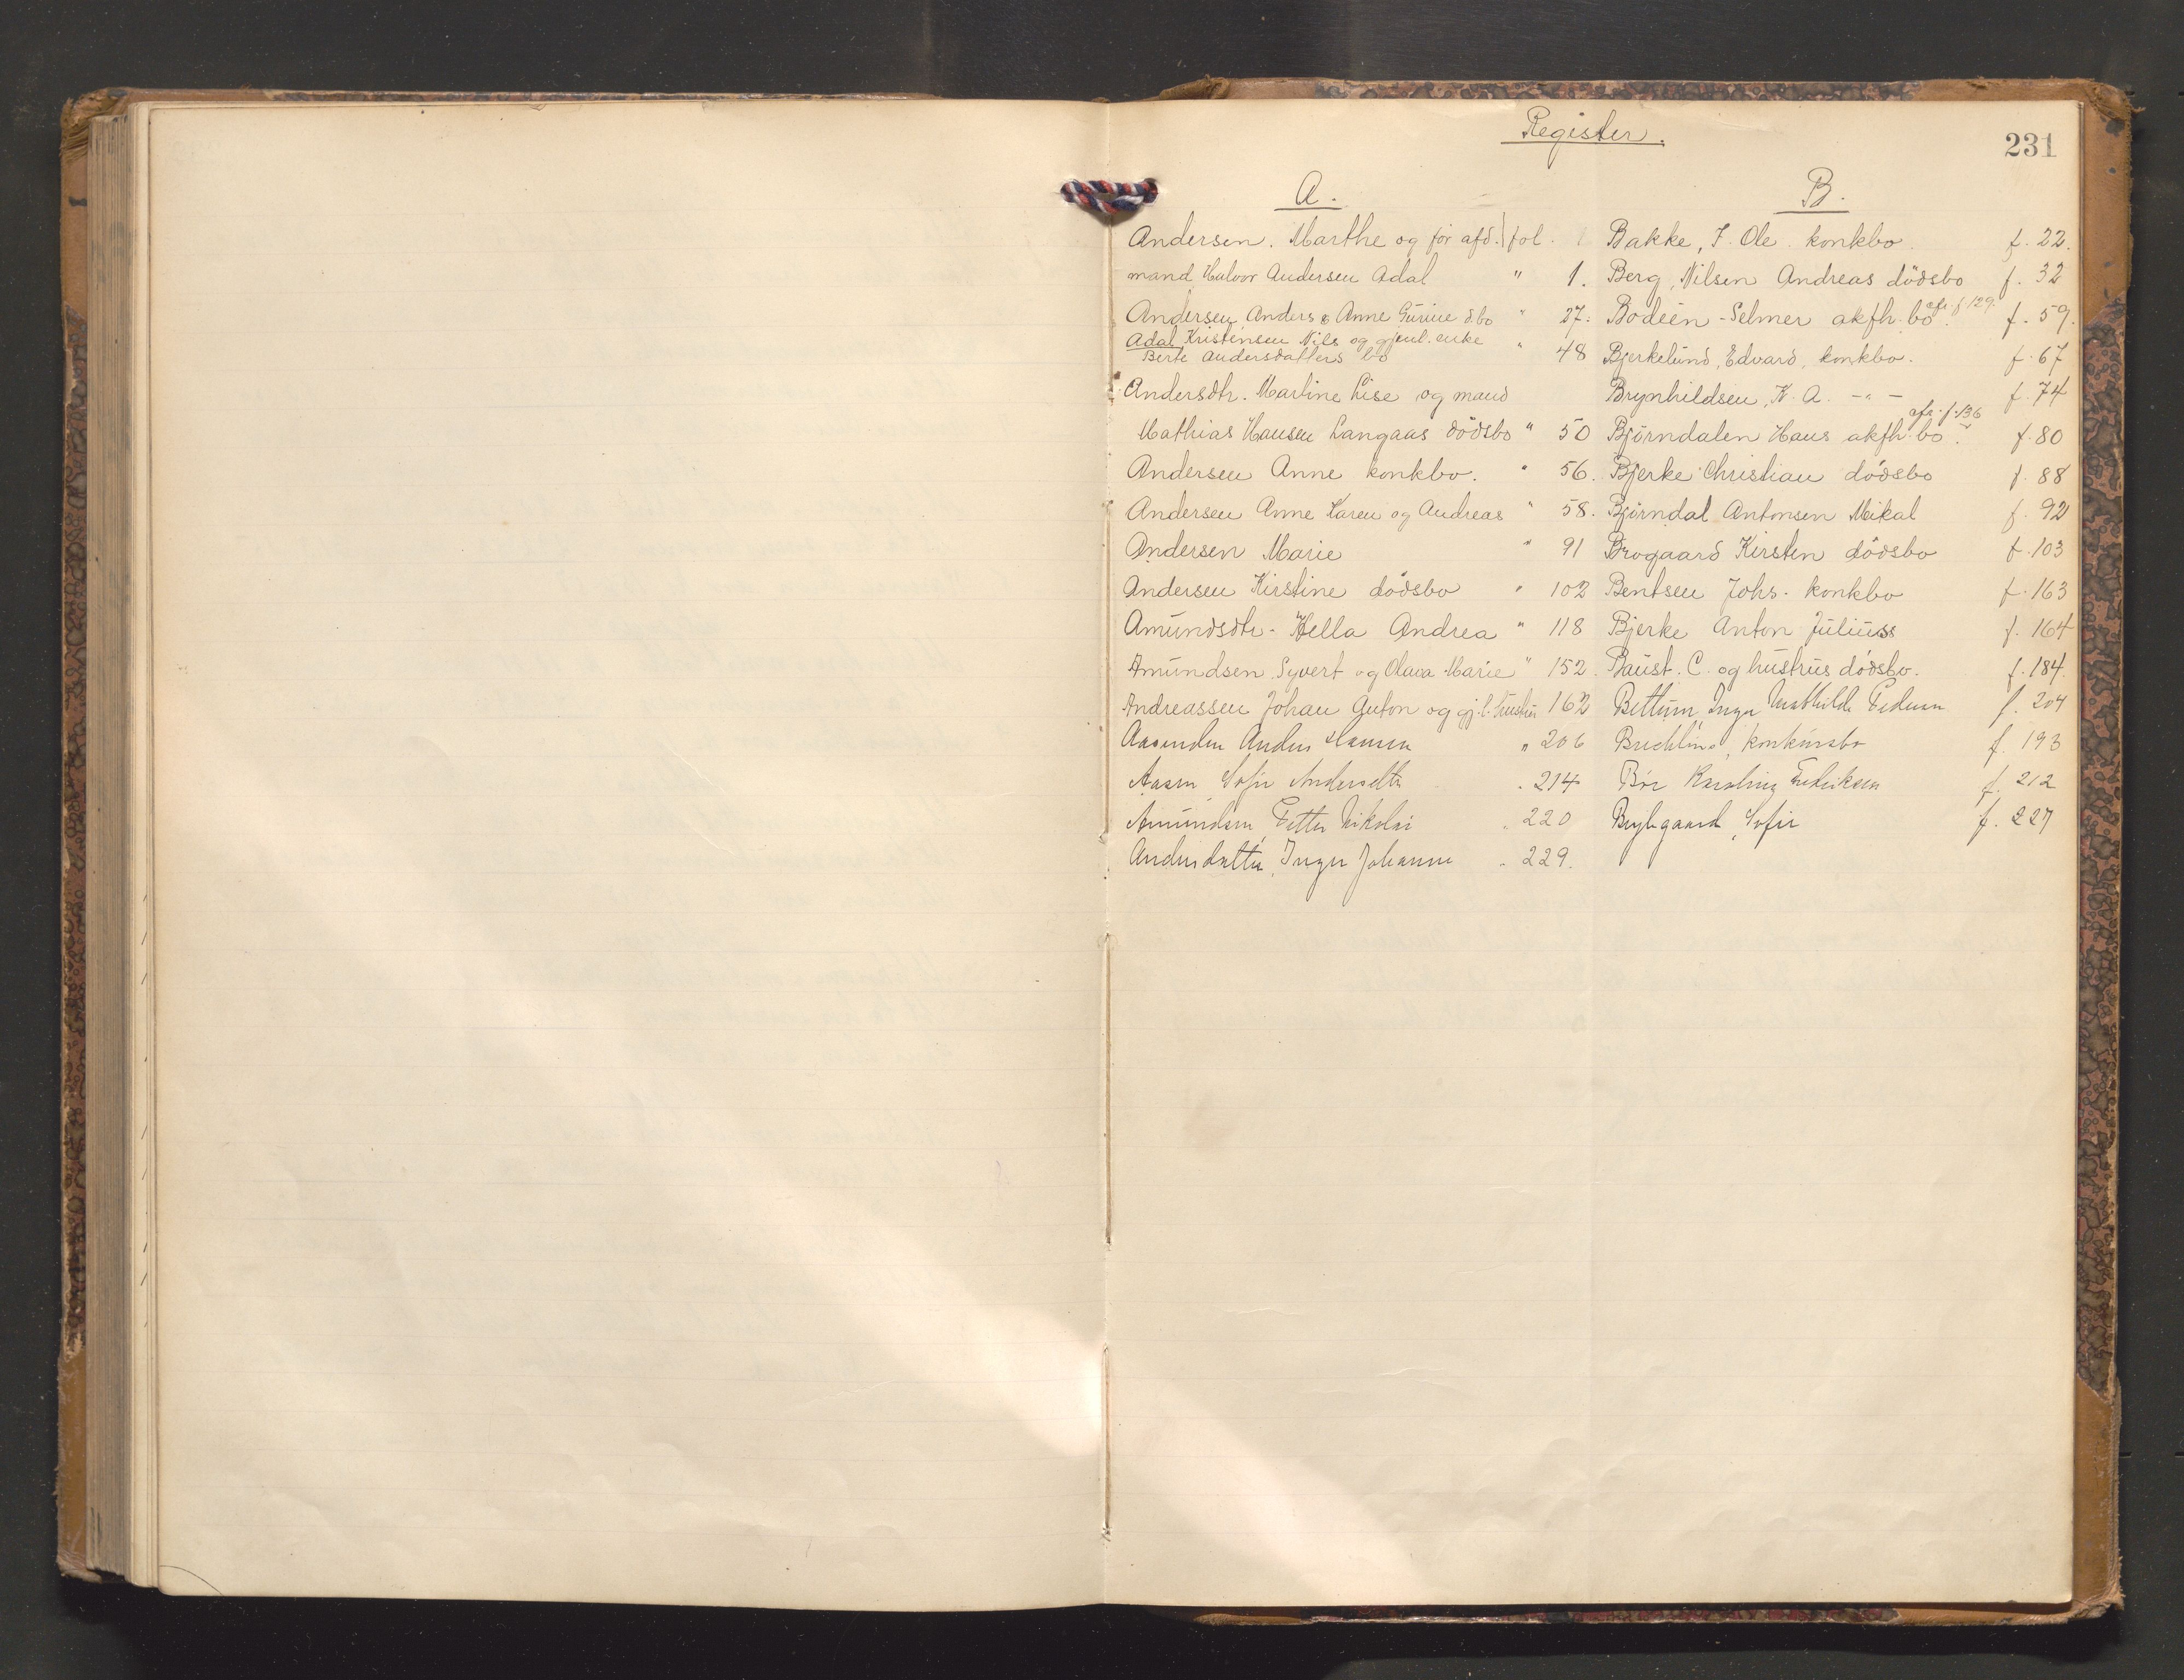 Register.
231
A.
Andersen. Marthe og før afd. fol.
mand Halvor Andersen Adal " 1.
Andersen, Anders & Anne Gurine d.bo " 27.
Adal Kristensen Nils og gjenl. enke
Berte Andersdatters bo " 48
Andersdtr. Martine Lise og mand
Mathias Hansen Langaas dödsbo " 50
Andersen Anne konkbo. " 56.
Andersen Anne Karen og Andreas " 58.
Andersen Marie " 91
Andersen Kirstine dödsbo " 102
Amundsdtr. Hella Andrea " 118
Amundsen Syvert og Olava Marie " 152.
Andreassen Johan Anton og gj.l. hustru 162
Aasenden Anders Hansen " 206
Aasen, Sofie Andersdtr . 214
Amundsen, Petter Nikolai " 220
Andersdatter, Inger Johanne " 229.
B.
Bakke, J. Ole. konkbo. f. 22.
Berg, Nilsen Andreas dödsbo f. 32
Bodéen-Selmer akfh. bo. afs. f. 129. f. 59.
Bjerkelund, Edvard, konkbo. f. 67
Brynhildsen, K. A. -"- f. 74
Björndalen Hans akfh. bo. afs. f. 136 f. 80
Bjerke Christian dödsbo f. 88
Björndal Antonsen Mikal f. 92
Brogaard Kirsten dödsbo f. 103
Bentsen Johs. konkbo f. 163
Bjerke Anton Juliuss f. 164
Baust. C. og hustrus dödsbo. f. 184.
Bettum, Inger Mathilde f. 204
konkursbo f. 193
Karoline Fredriksen f. 212
Sofie f. 227